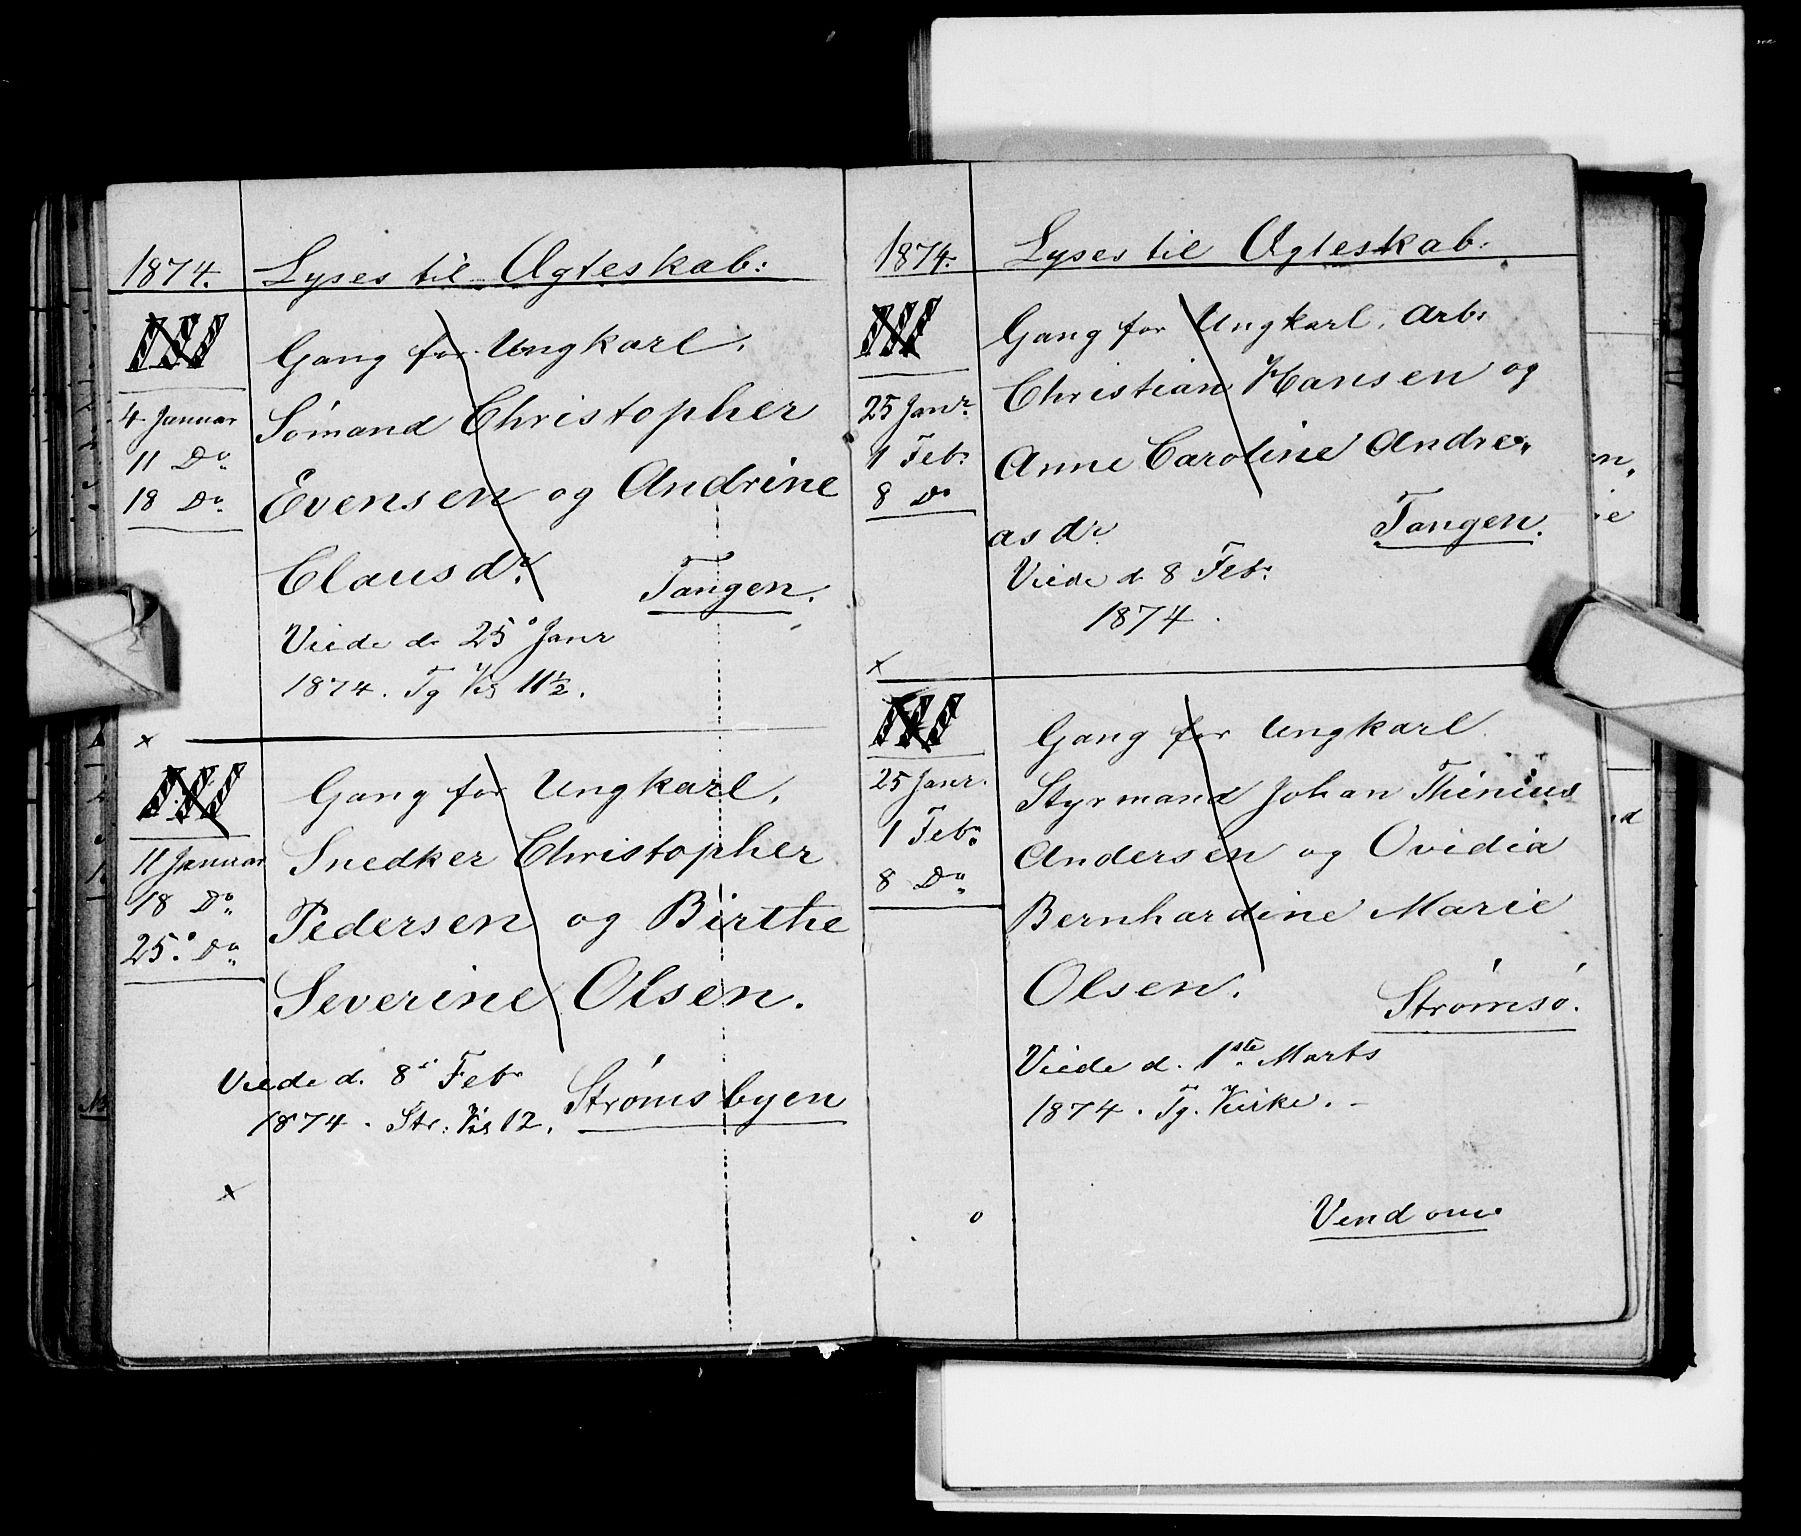 1874. Lyses til Ægteskab:
III Gang for Ungkarl.
4 Januar Sömand Christopher
11 Do Evensen og Andrine
18 Do
Clausdr. Tangen.
Viede d. 25 Janr
1874. Tg Kg 11½.
x
III Gang for Ungkarl.
11 Januar Snedker Christopher
18 Do Pedersen og Birthe
25 Do
Severine Olsen.
Viede d. 8 Febr Strömsbyen
1874. Str: Kg 12.
x
1874. Lyses til Ægteskab:
III Gang for Ungkarl. Arb:
25 Janr. Christian Hansen og
1 Febr Anne Caroline Andre„
8 Do
asdr. Tangen.
Viede d. 8 Febr.
1874.
x
III Gang for Ungkarl.
25 Janr. Styrmand Johan Thinius
1 Febr. Andersen og Ovidia
8 Do Bernhardine Marie
Olsen. Strömsö.
Viede d. 1ste Marts
1874. Tg. Kirke. –
o
Vend om